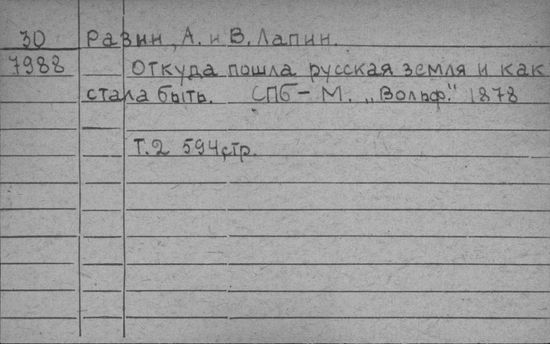 30 Разин, А. и В. Лапин.
7988 Откуда пошла русская земля и как
стала быть. СПб - М. „Вольф." 1878
Т.2 594 стр.